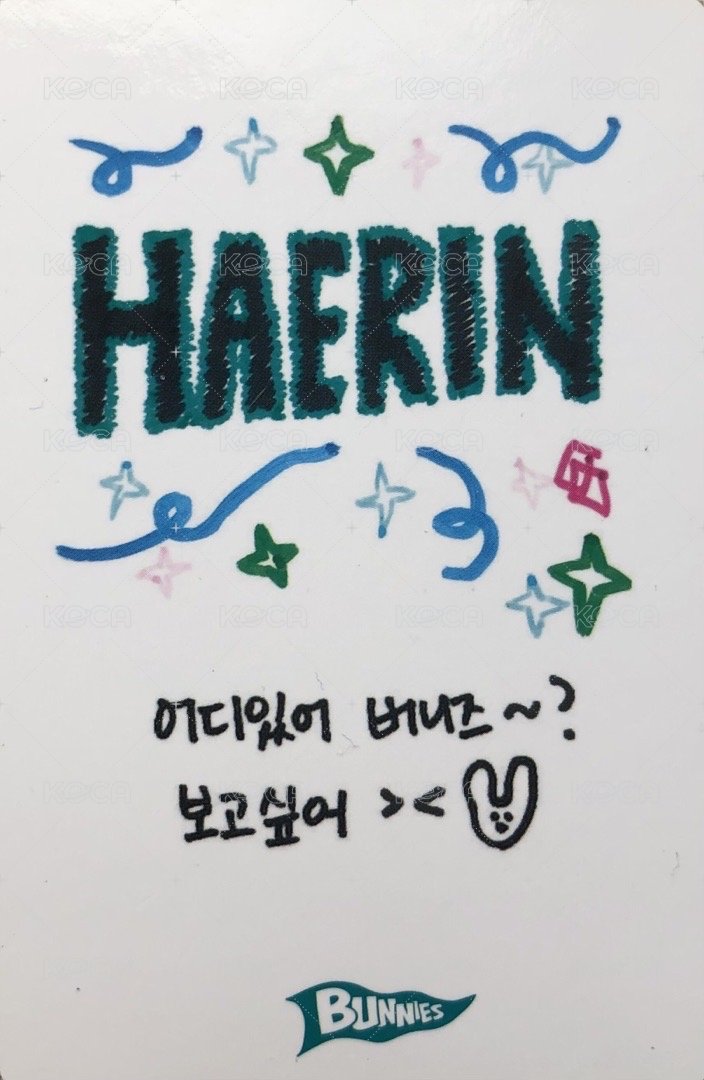 HAERIN
어디있어 버니즈~?
보고싶어 ><
BUNNIES
KOCA